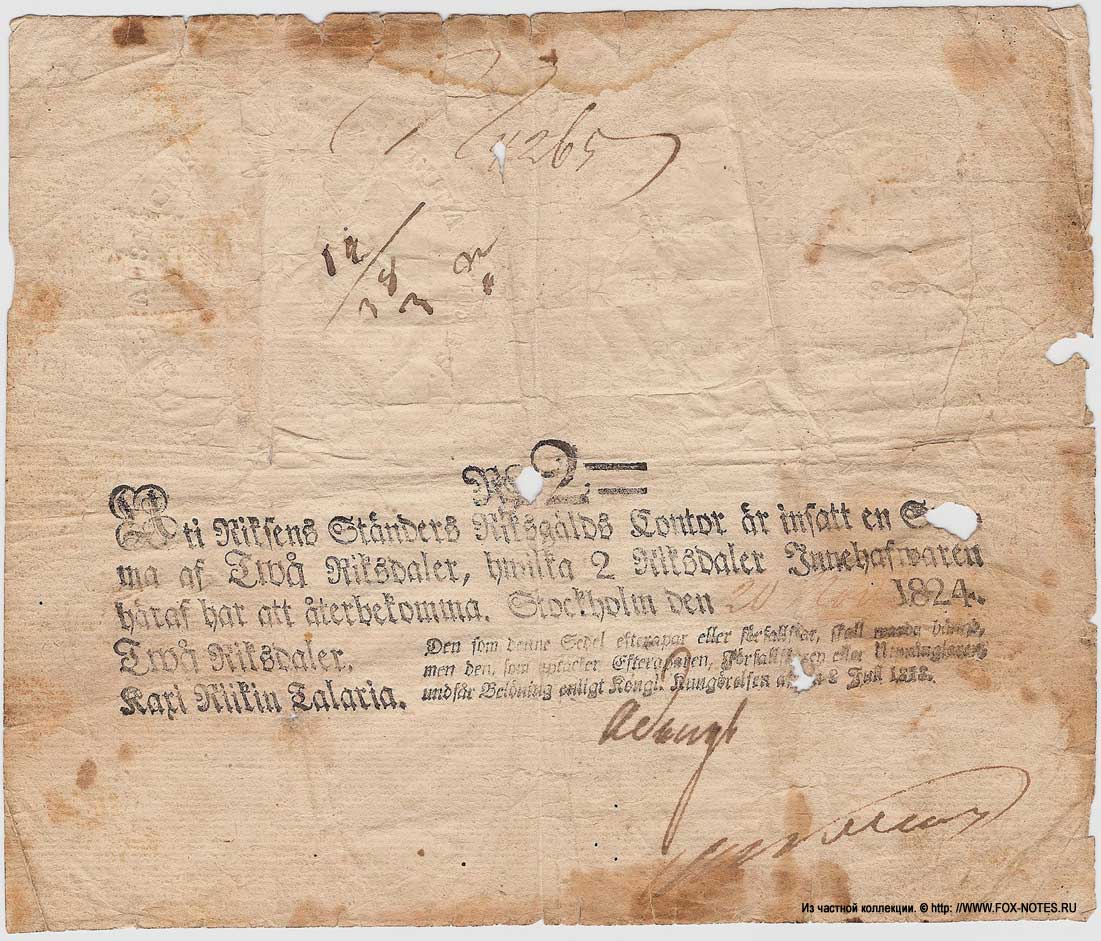 4265
12/3 83
No 2=
Uti Riksens Ständers Riksgälds Contor är insatt en
ma af Twå Riksdaler, hwilka 2 Riksdaler Innehafwaren
häraf har att återbekomma. Stockholm den 20 Nov 1824.
Twå Riksdaler.
Kaxi Riikin Talaria.
Den som denne Sedel efterapar eller förfalskar, skall warda hängd,
men den, som uptäcker Efteraparen, Förfalskaren eller
undfår Belöning enligt Kongl. Kungörelsen af Juli
Из частной коллекции. © http: //WWW.FOX-NOTES.RU